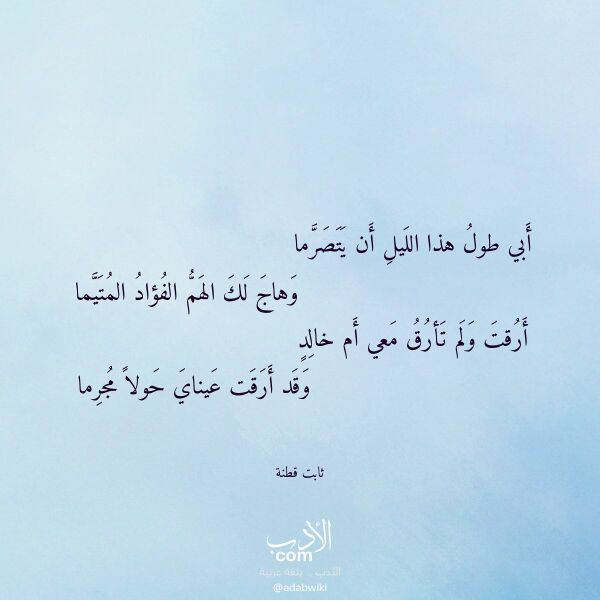 أَبي طولُ هذا اللَيلِ أَن يَتَصَرَّما
وَهاجَ لَكَ الهَمُّ الفُؤادُ المُتَيَّما
أَرُقتَ وَلَم تَأرُقُ مَعي أَم خالِدٍ
وَقَد أَرَقَت عَينايَ حَولاً مُجرِما
ثابت قطنة
الأدب
com
الأدب .. بلغة عربية
@adabwiki